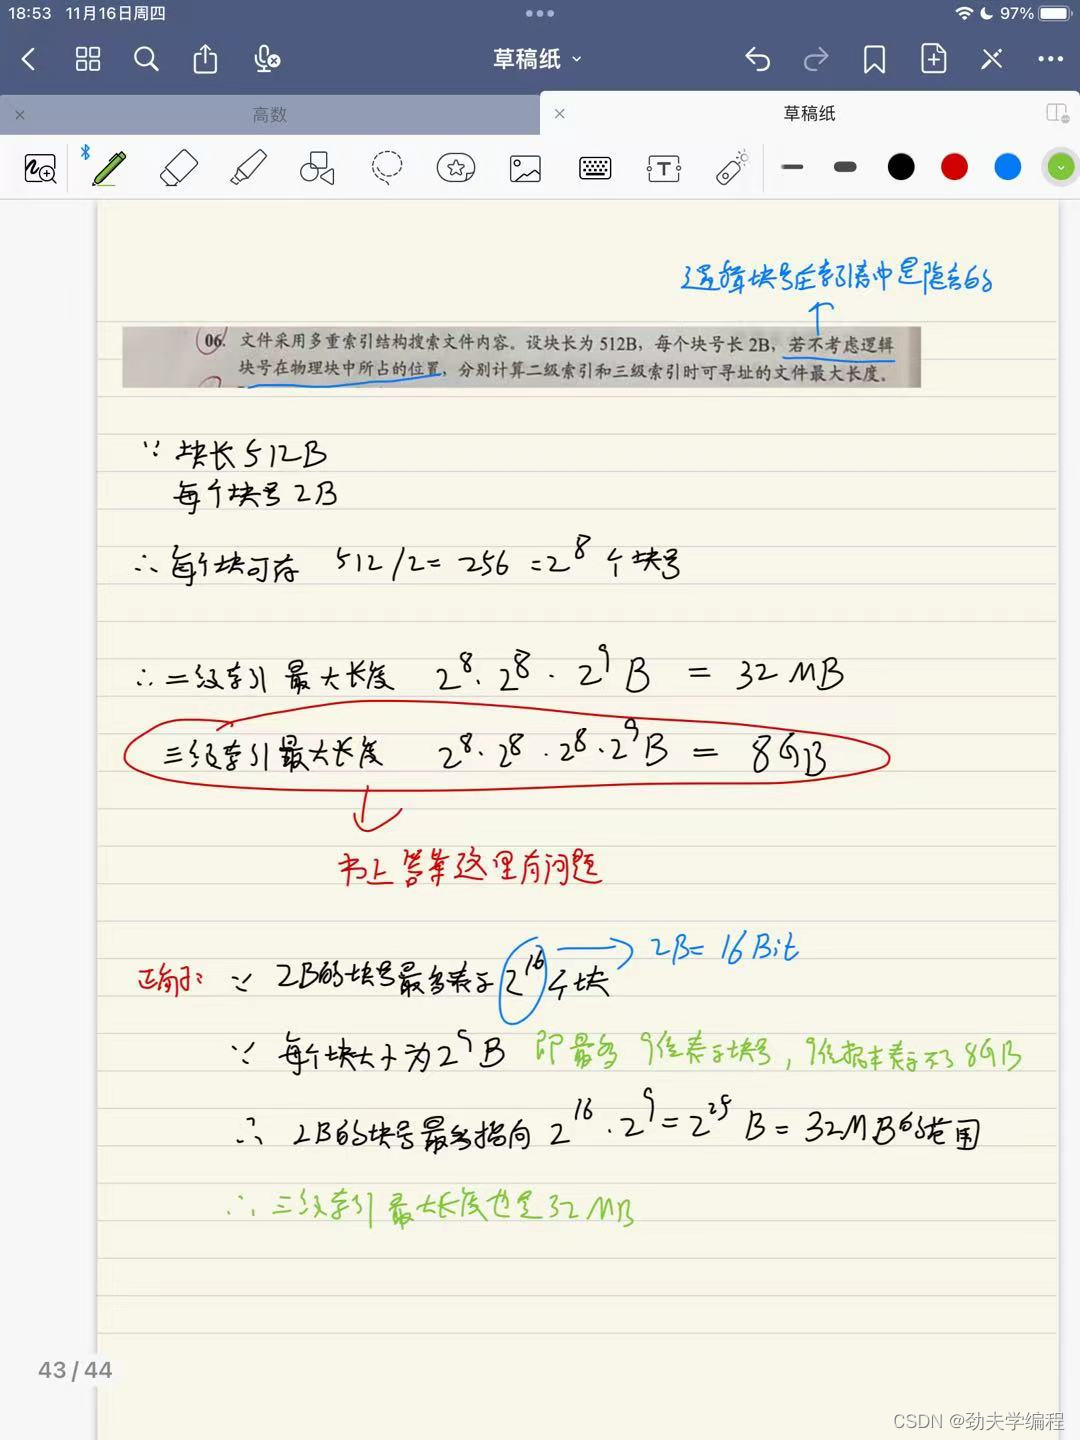 18:53 11月16日周四
97%
草稿纸
高数
草稿纸
T
逻辑块号在索引表中是隐含的
06. 文件采用多重索引结构搜索文件内容。设块长为 512B，每个块号长 2B，若不考虑逻辑
块号在物理块中所占的位置，分别计算二级索引和三级索引时可寻址的文件最大长度。
∵ 块长 512B
每个块号 2B
∴ 每个块可存 512/2 = 256 = 2⁸ 个块号
∴ 二级索引最大长度 2⁸ · 2⁸ · 2⁹ B = 32 MB
三级索引最大长度 2⁸ · 2⁸ · 2⁸ · 2⁹ B = 8GB
书上答案这里有问题
∵ 2B的块号最多表示 2¹⁶ 个块 2B = 16 Bit
∵ 每个块大小为 2⁹ B 即最多 9位表示块号，9位根本表示不了 8GB
∴ 2B的块号最多指向 2¹⁶ · 2⁹ = 2²⁵ B = 32MB的范围
∴ 三级索引最大长度也是 32 MB
43 / 44
CSDN @劲夫学编程